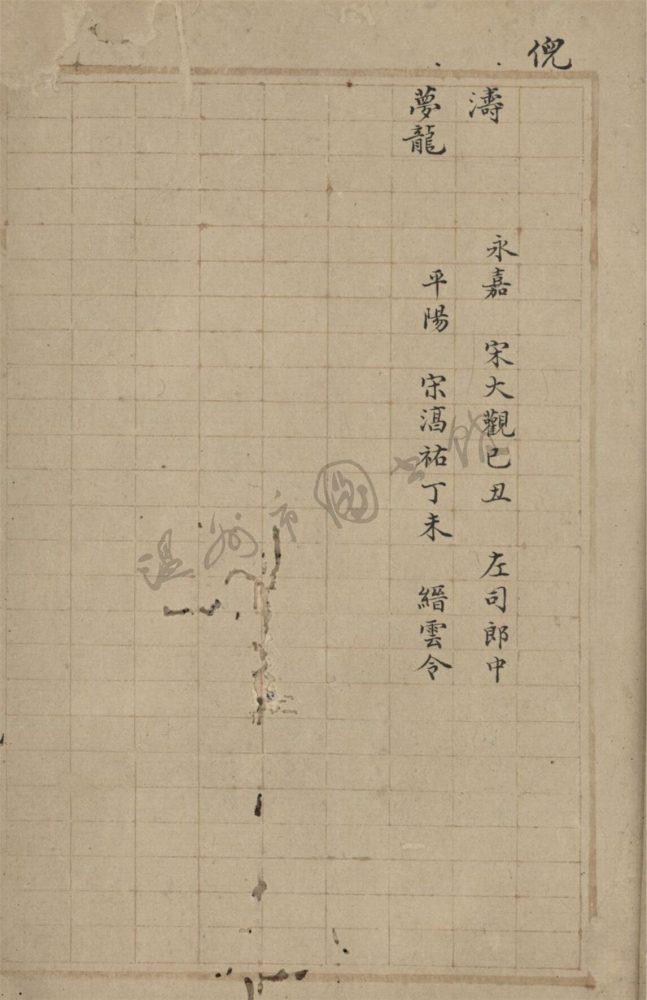 倪
濤 永嘉 宋大觀己丑 左司郎中
夢龍 平陽 宋湻祐丁未 縉雲令
温州市图书馆